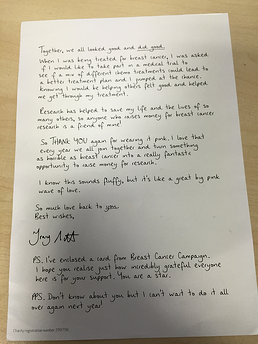 Together, we all looked good and did good.
When I was being treated for breast cancer, I was asked
if I would like to take part in a medical trial to
see if a mix of different chemo treatments could lead to
a better treatment plan and I jumped at the chance.
Knowing I would be helping others felt good and helped
me get through my treatment.
Research has helped to save my life and the lives of so
many others, so anyone who raises money for breast cancer
research is a friend of mine!
So THANK YOU again for wearing it pink. I love that
every year we all join together and turn something
as horrible as breast cancer into a really fantastic
opportunity to raise money for research.
I know this sounds fluffy, but it's like a great big pink
wave of love.
So much love back to you.
Best wishes,
PS. I've enclosed a card from Breast Cancer Campaign.
I hope you realise just how incredibly grateful everyone
here is for your support. You are a star.
PPS. Don't know about you but I can't wait to do it all
over again next year!
Charity registration number